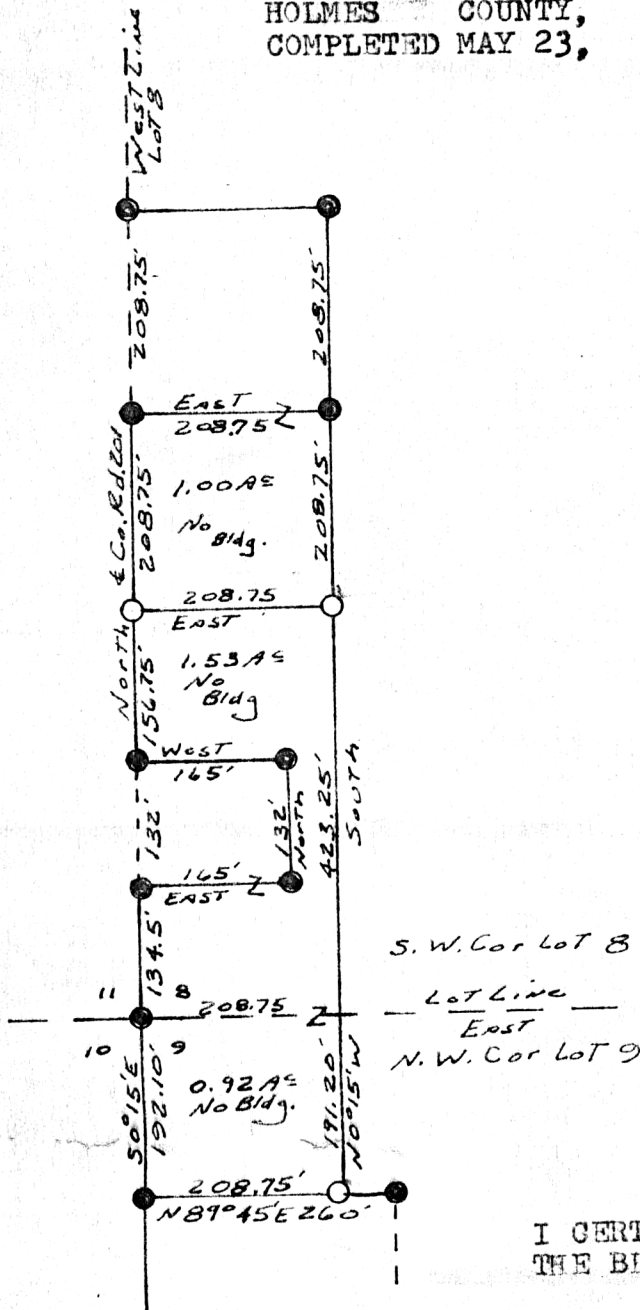 HOLMES COUNTY,
COMPLETED MAY 23,
West Line
Lot 8
208.75'
208.75'
EAST
208.75
¢ Co. Rd. 201
208.75'
1.00 Ac
No
Bldg.
208.75'
208.75
EAST
North
156.75'
1.53 Ac
No
Bldg
West
165'
132'
132'
North
423.25'
South
165'
EAST
134.5'
S. W. Cor Lot 8
11 8
208.75
Lot Line
East
10 9
N. W. Cor Lot 9
S0°15'E
192.10'
0.92 Ac
No Bldg.
191.20'
N0°15'W
208.75'
N89°45'E 260'
I CERT
THE BI